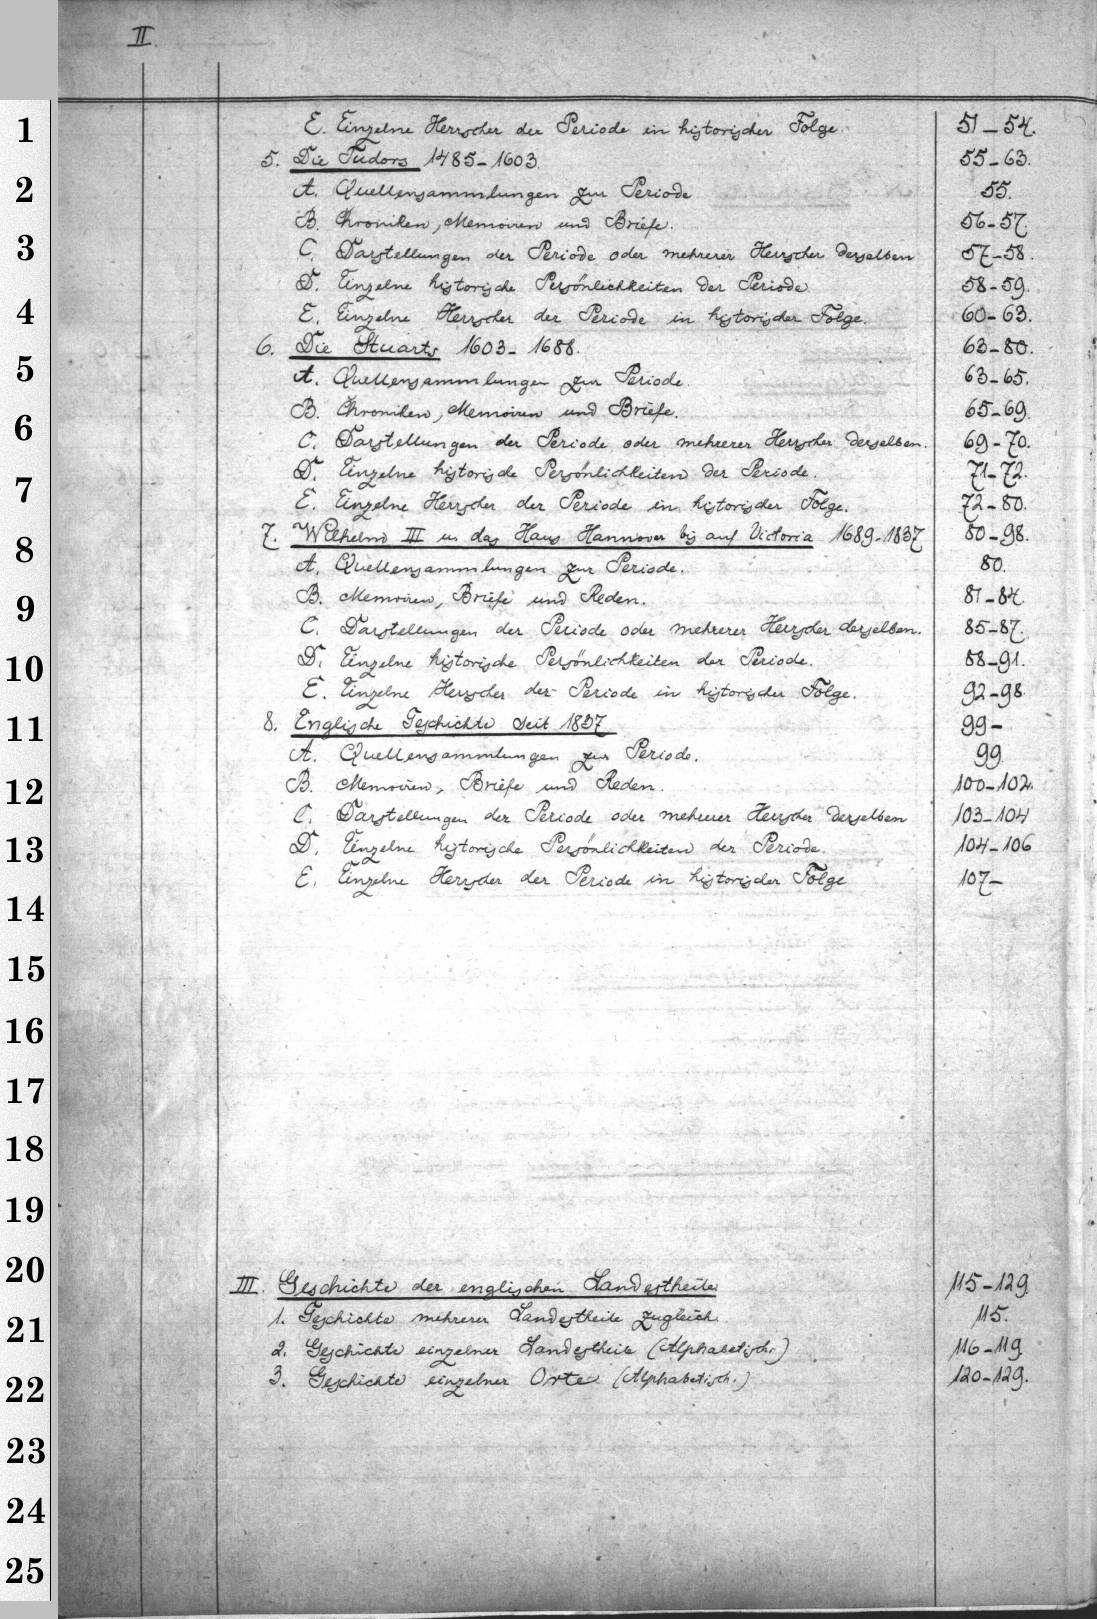 II.
1 E. Einzelne Herrscher der Periode in historischer Folge. 51-54.
5. Die Tudors 1485-1603 55-63.
2 A. Quellensammlungen zur Periode 55.
B. Chroniken, Memoiren und Briefe. 56-57.
3 C. Darstellungen der Periode oder mehrerer Herrscher derselben 57-58.
D. Einzelne historische Persönlichkeiten der Periode. 58-59.
4 E. Einzelne Herrscher der Periode in historischer Folge. 60-63.
6. Die Stuarts 1603-1688. 63-80.
5 A. Quellensammlungen zur Periode. 63-65.
B. Chroniken, Memoiren und Briefe. 65-69.
6 C. Darstellungen der Periode oder mehrerer Herrscher derselben. 69-70.
D. Einzelne historische Persönlichkeiten der Periode. 71-72.
7 E. Einzelne Herrscher der Periode in historischer Folge. 72-80.
7. Wilhelm III u. das Haus Hannover bis auf Victoria 1689-1837 80-98.
8 A. Quellensammlungen zur Periode. 80.
9 B. Memoiren, Briefe und Reden. 81-84.
C. Darstellungen der Periode oder mehrerer Herrscher derselben. 85-87.
10 D. Einzelne historische Persönlichkeiten der Periode. 88-91.
E. Einzelne Herrscher der Periode in historischer Folge. 92-98.
11 8. Englische Geschichte seit 1837 99-
A. Quellensammlungen zur Periode. 99
12 B. Memoiren, Briefe und Reden. 100-102.
C. Darstellungen der Periode oder mehrerer Herrscher derselben 103-104
13 D. Einzelne historische Persönlichkeiten der Periode. 104-106
E. Einzelne Herrscher der Periode in historischer Folge 107-
14
15
16
17
18
19
20 III. Geschichte der englischen Landestheile 115-129
21 1. Geschichte mehrerer Landestheile zugleich. 115.
2. Geschichte einzelner Landestheile (Alphabetisch.) 116-119
22 3. Geschichte einzelner Orte (Alphabetisch.) 120-129.
23
24
25